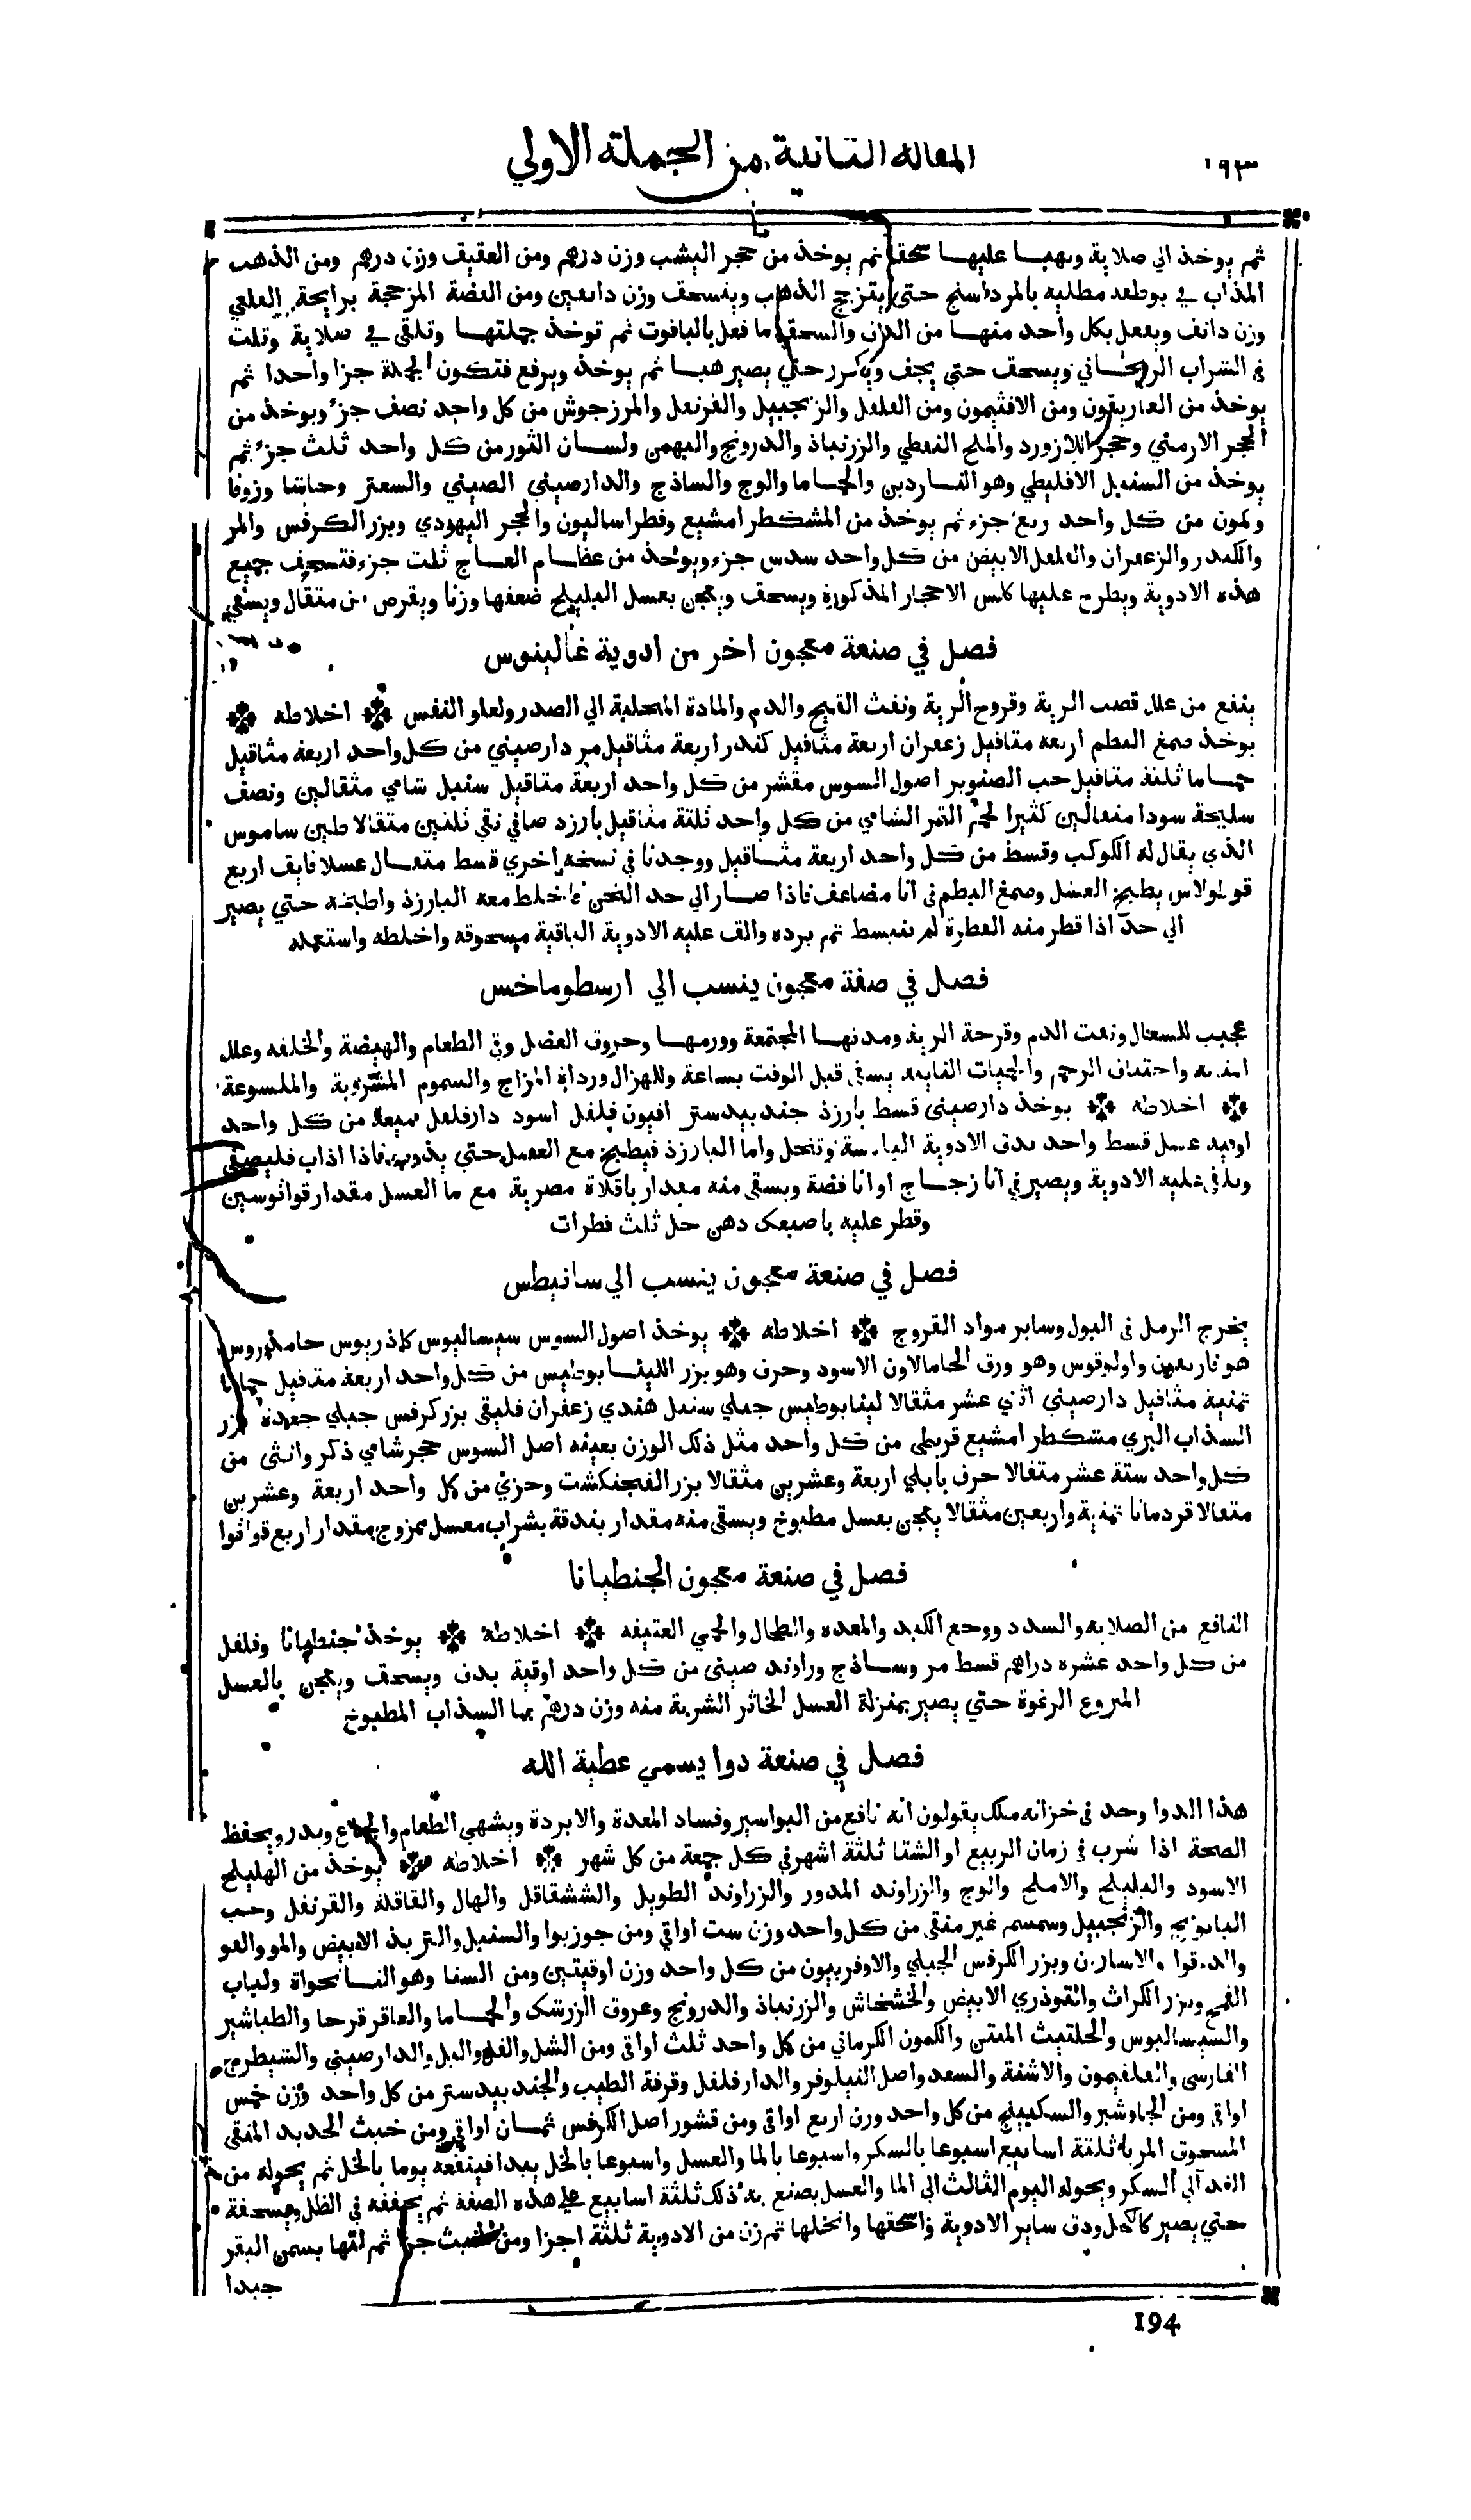 ١٩٣ المقاله الثانية من الجملة الاولي
ثم يوخذ الي صلاية ويهبا عليها سحقا ثم يوخذ من حجر اليشب وزن درهم ومن العقيق وزن درهم ومن الذهب
المذاب في بوطقه مطليه بالمرداسنج حتي يتزجج الذهب وينسحق وزن دانقين ومن الفضة المزججة برايحة القلعي
وزن دانف ويفعل بكل واحد منها من الدق والسحق ما فعل بالياقوت ثم توخذ جملتها وتلقي في صلاية وتلت
في الشراب الريحاني ويسحق حتي يجف ويكرر حتي يصير هبا ثم يوخذ ويرفع فتكون الجملة جزا واحدا ثم
يوخذ من الغاريقون ومن الافثيمون ومن الفلفل والزنجبيل والقرنفل والمرزجوش من كل واحد نصف جزء ويوخذ من
الحجر الارمني وحجر اللازورد والملح النفطي والزرنباذ والدرونج والبهمن ولسان الثور من كل واحد ثلث جزء ثم
يوخذ من السنبل الاقليطي وهو الناردين والحماما والوج والساذج والدارصيني الصيني والسعتر وحاشا وزوفا
وكمون من كل واحد ربع جزء ثم يوخذ من المشكطرامشيع وفطراساليون والحجر اليهودي وبزر الكرفس والمر
والكندر والزعفران والفلفل الابيض من كل واحد سدس جزء ويوخذ من عظام العاج ثلث جزء فتسحق جميع
هذه الادوية ويطرح عليها كلس الاحجار المذكورة ويسحق ويعجن بعسل البليلج ضعفها وزنا ويقرص من مثقال ويسقي
فصل في صنعة معجون اخر من ادوية غالينوس
ينفع من علل قصب الرية وقروح الرية ونفث القيح والدم والمادة المتحلبة الي الصدر ولعلو النفس ✤ اخلاطه ✤
يوخذ صمغ البطم اربعه مثاقيل زعفران اربعة مثاقيل كندر اربعة مثاقيل مر دارصيني من كل واحد اربعة مثاقيل
حماما ثلثة مثاقيل حب الصنوبر اصول السوس مقشر من كل واحد اربعة مثاقيل سنبل شامي مثقالين ونصف
سليخة سودا مثقالين كثيرا لحم التمر الشامي من كل واحد ثلثة مثاقيل بارزد صافي نقي ثلثين مثقالا طين ساموس
الذي يقال له الكوكب وقسط من كل واحد اربعة مثاقيل ووجدنا في نسخه اخري قسط مثقال عسلا فايق اربع
قوطولاس يطبخ العسل وصمغ البطم في انا مضاعف فاذا صار الي حد الثخن فاخلط معه البارزد واطبخه حتي يصير
الي حد اذا قطر منه القطرة لم ينبسط ثم برده والق عليه الادوية الباقية مسحوقه واخلطه واستعمله
فصل في صفة معجون ينسب الي ارسطوماخس
عجيب للسعال ونفث الدم وقرحة الرية ومدتها المجتمعة وورمها وخروق العضل وقي الطعام والهيضة والخلفه وعلل
المثانه واختناق الرحم والحميات النايبه يسقي قبل الوقت بساعة وللهزال ورداة المزاج والسموم المشروبة والملسوعة
✤ اخلاطه ✤ يوخذ دارصيني قسط بارزذ جندبيدستر افيون فلفل اسود دارفلفل ميعة من كل واحد
اوقيه عسل قسط واحد يدق الادوية اليابسة وتنخل واما البارزذ فيطبخ مع العسل حتي يذوب فاذا اذاب فليصفي
ويلقي عليه الادوية ويصير في انا زجاج او انا فضة ويسقي منه مقدار باقلاة مصرية مع ما العسل مقدار قوانوسين
وقطر عليه باصبعك دهن حل ثلث قطرات
فصل في صنعة معجون ينسب الي سانيطس
يخرج الرمل في البول وساير مواد القروح ✤ اخلاطه ✤ يوخذ اصول السوس سيساليوس كماذريوس حامذروس
هو ناريقون واولوقوس وهو ورق الحامالاون الاسود وحرف وهو بزر اللينابوطيس من كل واحد اربعة مثاقيل حماما
ثمنية مثاقيل دارصيني اثني عشر مثقالا لينابوطيس جبلي سنبل هندي زعفران فليقي بزر كرفس جبلي جعدة بزر
السذاب البري مشكطرامشيع قريطي من كل واحد مثل ذلك الوزن بعينه اصل السوس حجر شامي ذكر وانثي من
كل واحد ستة عشر مثقالا حرف بابلي اربعة وعشرين مثقالا بزر الفنجنكشت وحزي من كل واحد اربعة وعشرين
مثقالا قردمانا ثمنية واربعين مثقالا يعجن بعسل مطبوخ ويسقي منه مقدار بندقة بشراب معسل ممزوج مقدار اربع قواثوا
فصل في صنعة معجون الجنطيانا
النافع من الصلابه والسدد ووجع الكبد والمعده والطحال والحمي العتيقه ✤ اخلاطه ✤ يوخذ جنطيانا وفلفل
من كل واحد عشره دراهم قسط مر وساذج وراوند صيني من كل واحد اوقية يدق ويسحق ويعجن بالعسل
المنزوع الرغوة حتي يصير بمنزلة العسل الخاثر الشربة منه وزن درهم بما السذاب المطبوخ
فصل في صنعة دوا يسمي عطية الله
هذا الدوا وجد في خزانه ملك يقولون انه نافع من البواسير وفساد المعدة والابردة ويشهي الطعام والجماع ويدر ويحفظ
الصحة اذا شرب في زمان الربيع او الشتا ثلثة اشهر في كل جمعة من كل شهر ✤ اخلاطه ✤ يوخذ من الهليلج
الاسود والبليلج والاملج والوج والزراوند المدور والزراوند الطويل والششقاقل والهال والقاقلة والقرنفل وحب
البابونج والزنجبيل وسمسم غير منقي من كل واحد وزن ست اواقي ومن جوزبوا والسنبل والتربذ الابيض والمو والفو
والدوقوا والاسارون وبزر الكرفس الجبلي والاوفربيون من كل واحد وزن اوقيتين ومن السنا وهو النانخواة ولباب
القمح وبزر الكراث والتوذري الابيض والخشخاش والزرنباذ والدرونج وعروق الزرشك والحماما والعاقرقرحا والطباشير
والسيساليوس والحلتيث المنتن والكمون الكرماني من كل واحد ثلث اواقي ومن الشل والفل والبل والدارصيني والشيطرج
الفارسي والفلفيمون والاشنة والسعد واصل النيلوفر والدارفلفل وقرفة الطيب والجندبيدستر من كل واحد وزن خمس
اواقي ومن الجاوشير والسكبينج من كل واحد وزن اربع اواقي ومن قشور اصل الكرفس ثمان اواقي ومن خبث الحديد المنقي
المسحوق المرباة ثلثة اسابيع اسبوعا بالسكر واسبوعا بالما والعسل واسبوعا بالخل يبدا فينقعه يوما بالخل ثم يحوله من
الغد الي السكر ويحوله اليوم الثالث الي الما والعسل يصنع به ذلك ثلثة اسابيع علي هذه الصفة ثم يجففه في الظل ويسحقه
حتي يصير كالكحل ودق ساير الادوية واسحقها وانخلها ثم زن من الادوية ثلثة اجزا ومن الخبث جزا ثم لتها بسمن البقر
جيدا
194